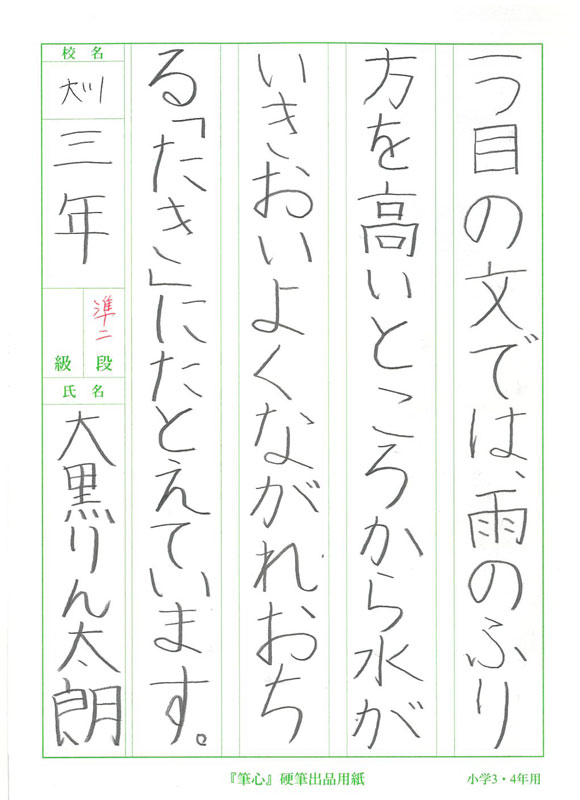 一つ目の文では、雨のふり
方を高いところから水が
いきおいよくながれおち
る「たき」にたとえています。
校名
三年
準二
段
級
氏名
大黒りん太朗
『筆心』硬筆出品用紙
小学3・4年用